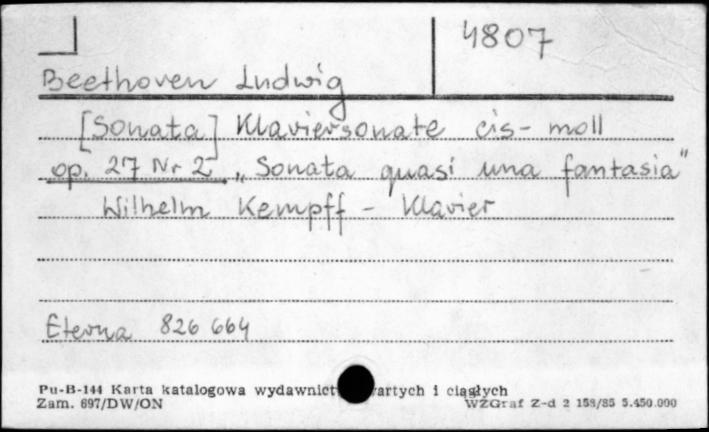 4807
Beethoven Ludwig
[Sonata] Klaviersonate cis-moll
op. 27 Nr 2 „Sonata quasi una fantasia"
Wilhelm Kempff - Klavier
Eterna 826 664
Pu-B-144 Karta katalogowa wydawnict artych i ciągłych
Zam. 697/DW/ON WZGraf Z-d 2 158/85 5.450.000